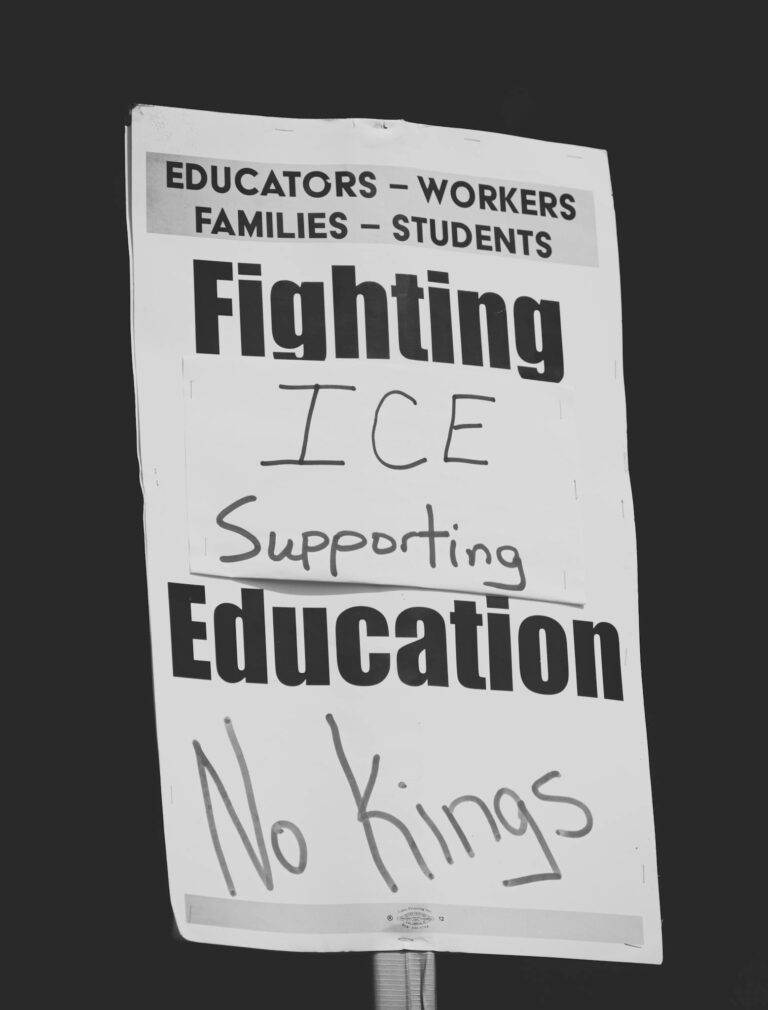 EDUCATORS – WORKERS
FAMILIES – STUDENTS
Fighting
ICE
Supporting
Education
No Kings